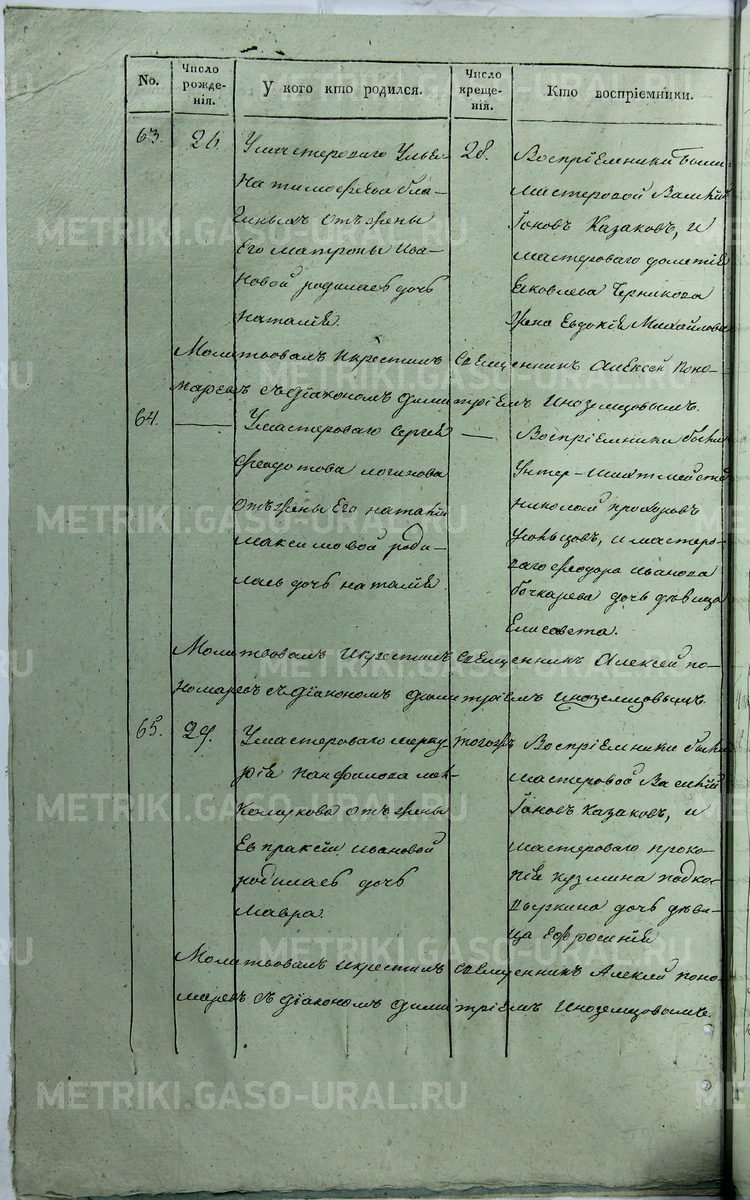 No.
Число рожде-нія.
У кого кто родился.
Число креще-нія.
Кто воспріемники.
63.
26.
Умастероваго Улья-
на тимофѣева
гиныхъ отъ жены
Его матроны Ива-
новой родилась дочь
наталія.
28.
Воспріемники были
мастеровой Василій
Іоновъ Казаковъ, и
мастероваго дометія
Яковлева Черникова
жена Евдокія Михайлова
Молитвовалъ Икрестилъ Священникъ Алексей поно-
маревъ съ діакономъ димитріемъ Иноземцовымъ.
64.
Умастероваго Сергія
феодотова логинова
отъ жены Его наталіи
максимовой роди-
лась дочь наталія.
Воспріемники были
Унтер-шихтмейстеръ
николай прохоровъ
и мастеро-
ваго феодора иванова
бочкарева дочь дѣвица
Елисавета.
Молитвовалъ Икрестилъ Священникъ Алексей по-
номаревъ съ діакономъ димитріемъ иноземцовымъ.
65.
29.
Умастероваго мерку-
рія панфилова
отъ жены
Евпраксіи ивановой
родилась дочь
Мавра.
тогожъ
Воспріемники были
мастеровой Василій
Іоновъ Казаковъ, и
мастероваго проко-
пія кузмина подко-
рыткина дочь дѣви-
ца Ефросинія
Молитвовалъ Икрестилъ Священникъ Алексей поно-
маревъ съ діакономъ димитріемъ Иноземцовымъ.
METRIKI.GASO-URAL.RU